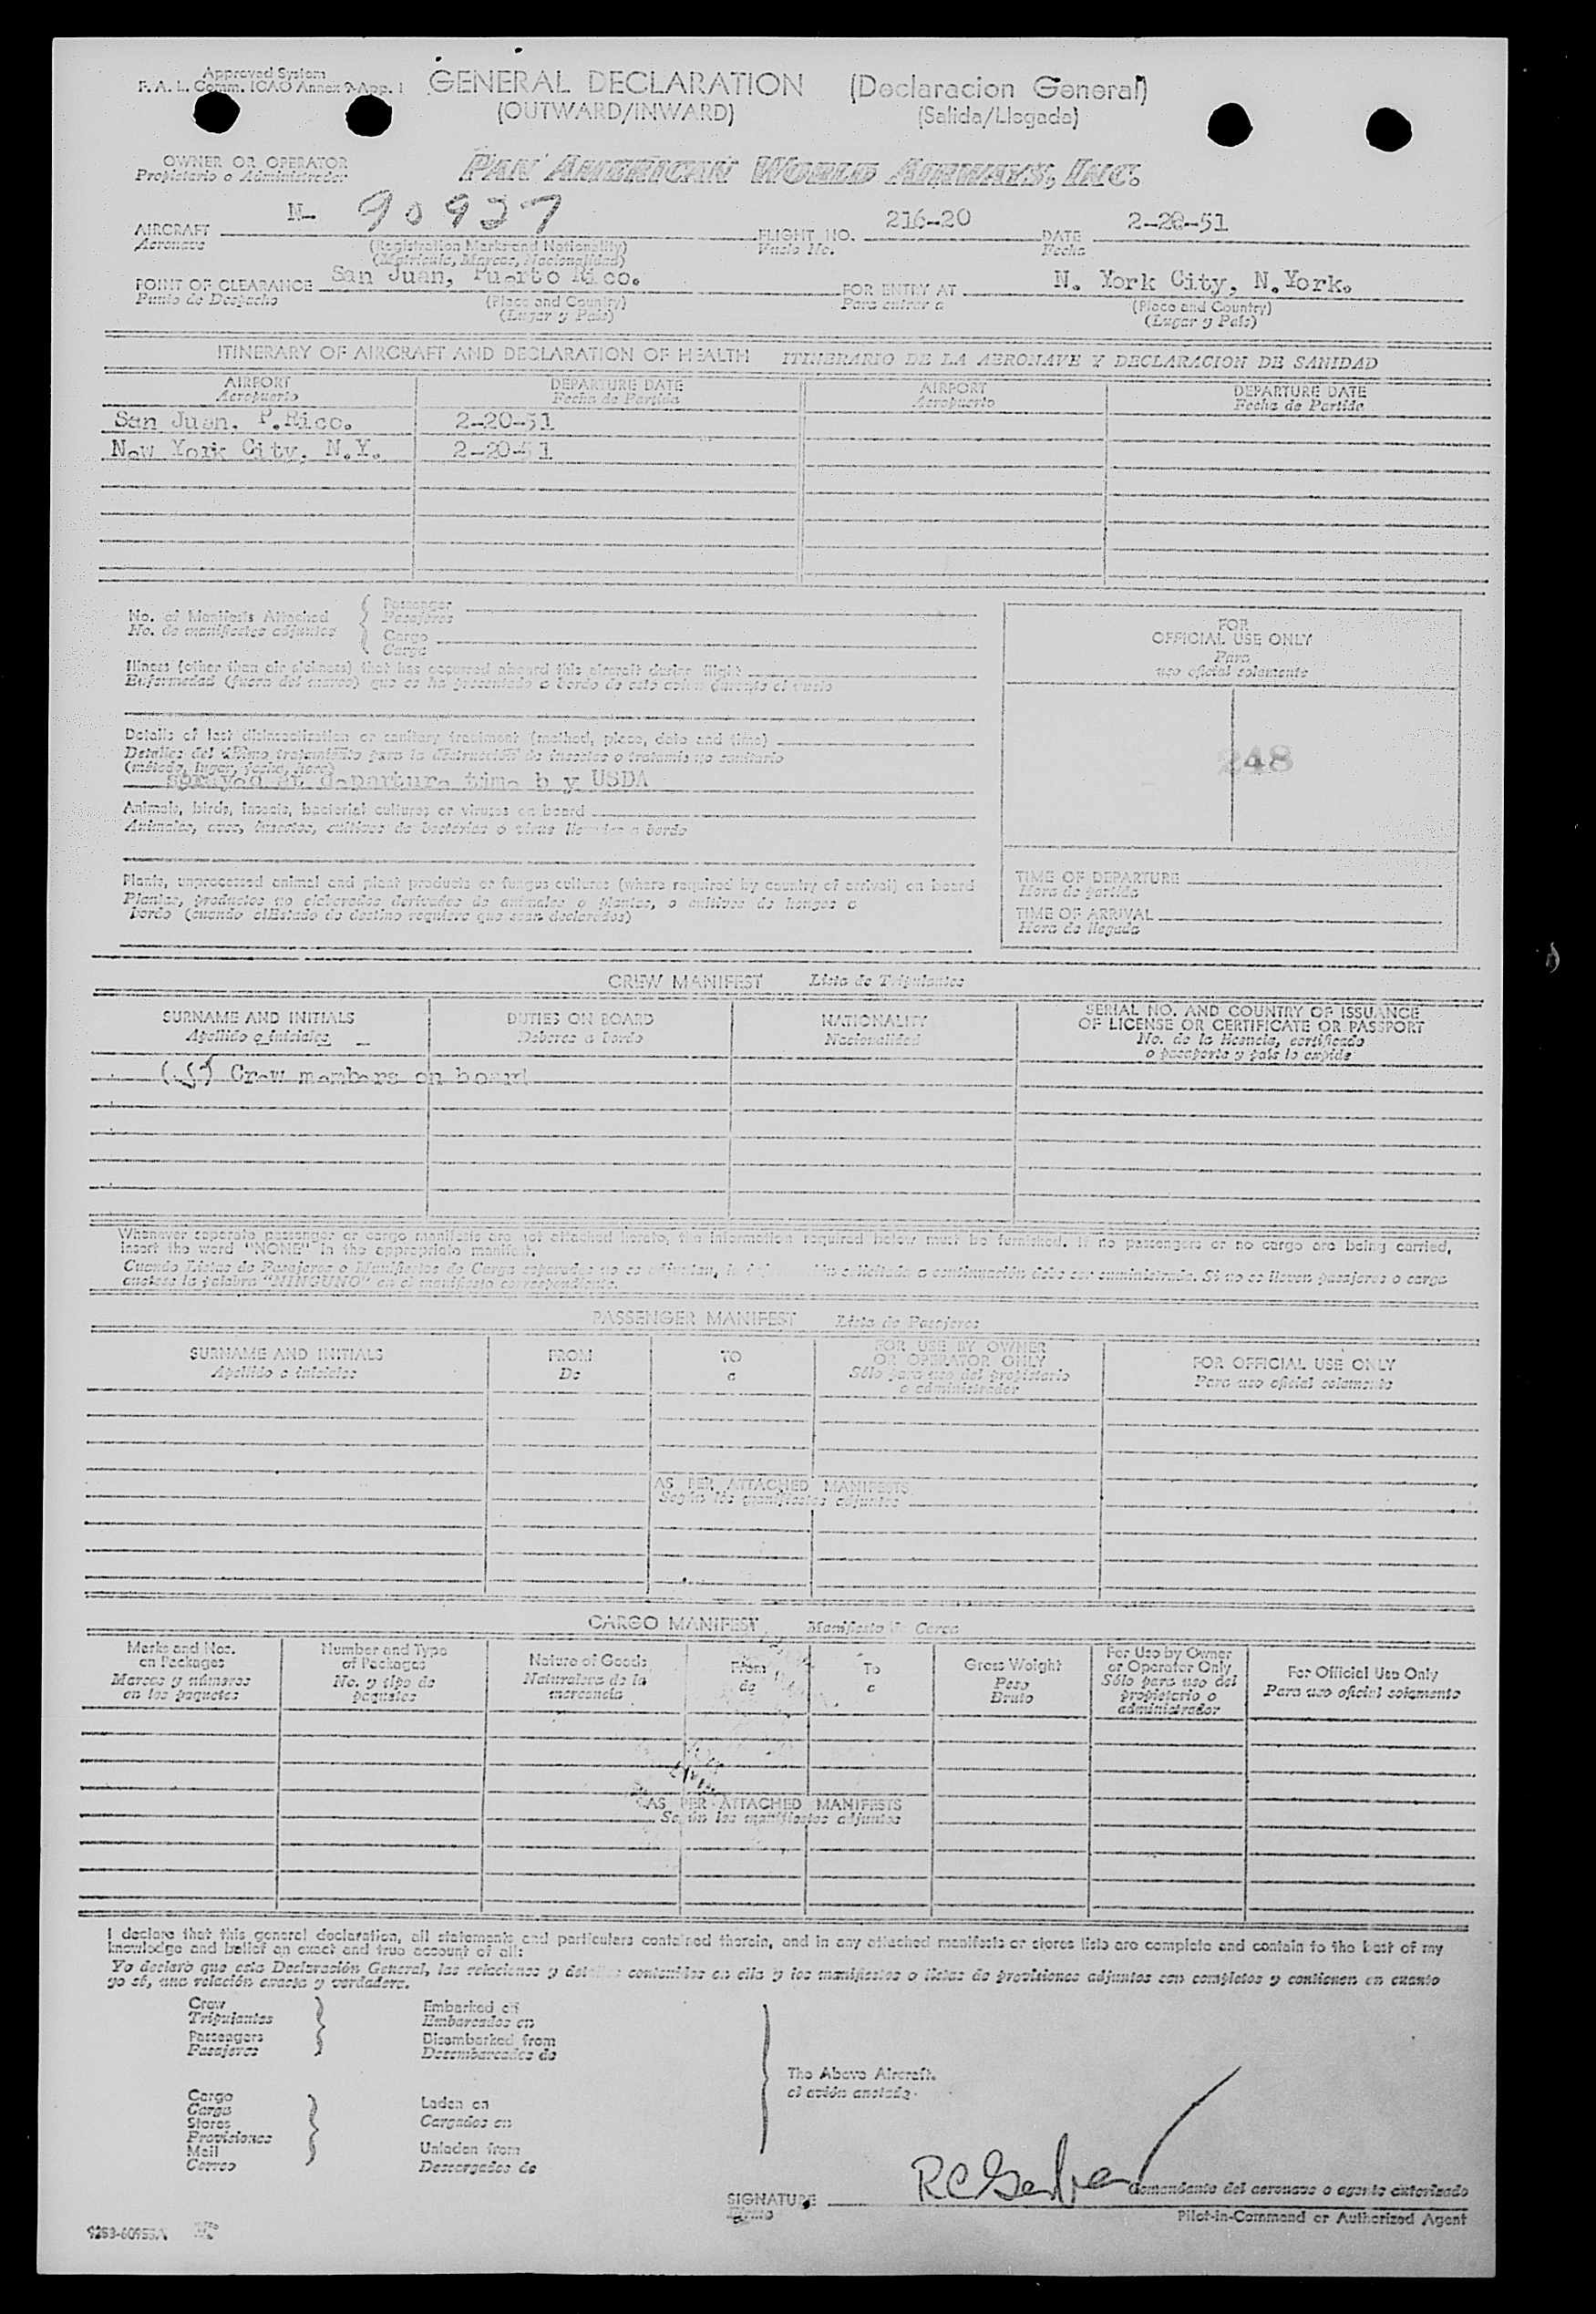 Approved System
F. A. L. Comm. ICAO Annex 9-App. 1
GENERAL DECLARATION (Declaracion General)
(OUTWARD/INWARD) (Salida/Llegada)
OWNER OR OPERATOR
Propietario o Administrador
PAN AMERICAN WORLD AIRWAYS, INC.
AIRCRAFT N- 90927 FLIGHT NO. 216-20 DATE 2-20-51
Aeronave (Registration Marks and Nationality) Vuelo No. Fecha
(Matricula, Marcas, Nacionalidad)
POINT OF CLEARANCE San Juan, Puerto Rico. FOR ENTRY AT N. York City, N.York.
Punto de Despacho (Place and Country) Para entrar a (Place and Country)
(Lugar y País) (Lugar y País)
ITINERARY OF AIRCRAFT AND DECLARATION OF HEALTH ITINERARIO DE LA AERONAVE Y DECLARACION DE SANIDAD
AIRPORT DEPARTURE DATE AIRPORT DEPARTURE DATE
Aeropuerto Fecha de Partida Aeropuerto Fecha de Partida
San Juan. P.Rico. 2-20-51
New York City, N.Y. 2-20-51
No. of Manifests Attached
No. de manifiestos adjuntos
Passenger
Pasajeros
Cargo
Carga
Illness (other than air sickness) that has occurred aboard this aircraft during flight
Enfermedad (fuera del mareo) que se ha presentado a bordo de este avion durante el vuelo
Details of last disinsectization or sanitary treatment (method, place, date and time)
Detalles del último tratamiento para la destrucción de insectos o tratamiento sanitario
(método, lugar, fecha, hora)
sprayed at departure time b y USDA
Animals, birds, insects, bacterial cultures or viruses on board
Animales, aves, insectos, cultivos de bacterias o virus llevados a bordo
Plants, unprocessed animal and plant products or fungus cultures (where required by country of arrival) on board
Plantas, productos no elaborados derivados de animales o plantas, o cultivos de hongos a
bordo (cuando el Estado de destino requiere que sean declarados)
FOR
OFFICIAL USE ONLY
Para
uso oficial solamente
248
TIME OF DEPARTURE
Hora de partida
TIME OF ARRIVAL
Hora de llegada
CREW MANIFEST Lista de Tripulantes
SURNAME AND INITIALS DUTIES ON BOARD NATIONALITY SERIAL NO. AND COUNTRY OF ISSUANCE
OF LICENSE OR CERTIFICATE OR PASSPORT
Apellido o iniciales Deberes a bordo Nacionalidad No. de la licencia, certificado
o pasaporte y país lo expide
(5) Crew members on board
Whenever separate passenger or cargo manifests are not attached hereto, the information required below must be furnished. If no passengers or no cargo are being carried,
insert the word "NONE" in the appropriate manifest.
Cuando Listas de Pasajeros o Manifiestos de Carga separados no se adjuntan, la información solicitada a continuación debe ser suministrada. Si no se llevan pasajeros o carga
anótese la palabra "NINGUNO" en el manifiesto correspondiente.
PASSENGER MANIFEST Lista de Pasajeros
SURNAME AND INITIALS FROM TO FOR USE BY OWNER
OR OPERATOR ONLY FOR OFFICIAL USE ONLY
Apellido o iniciales De a Sólo para uso del propietario
o administrador Para uso oficial solamente
AS PER ATTACHED MANIFESTS
Según los manifiestos adjuntos
CARGO MANIFEST Manifiesto de Carga
Marks and Nos.
on Packages
Marcas y números
en los paquetes
Number and Type
of Packages
No. y tipo de
paquetes
Nature of Goods
Naturaleza de la
mercancía
From
de
To
a
Gross Weight
Peso
Bruto
For Use by Owner
or Operator Only
Sólo para uso del
propietario o
administrador
For Official Use Only
Para uso oficial solamente
AS PER ATTACHED MANIFESTS
Según los manifiestos adjuntos
I declare that this general declaration, all statements and particulars contained therein, and in any attached manifests or stores lists are complete and contain to the best of my
knowledge and belief an exact and true account of all:
Yo declaro que esta Declaración General, las relaciones y detalles contenidos en ella y los manifiestos o listas de provisiones adjuntos son completos y contienen en cuanto
yo sé, una relación exacta y verdadera.
Crew
Tripulantes
Passengers
Pasajeros
Embarked on
Embarcados en
Disembarked from
Desembarcados de
Cargo
Carga
Stores
Provisiones
Mail
Correo
Laden on
Cargados en
Unladen from
Descargados de
The Above Aircraft.
el avión anotado.
SIGNATURE
Firma
Comandante del aeronave o agente autorizado
Pilot-in-Command or Authorized Agent